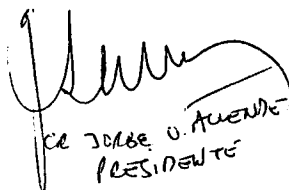 CR JORGE O. ALLENDE
PRESIDENTE